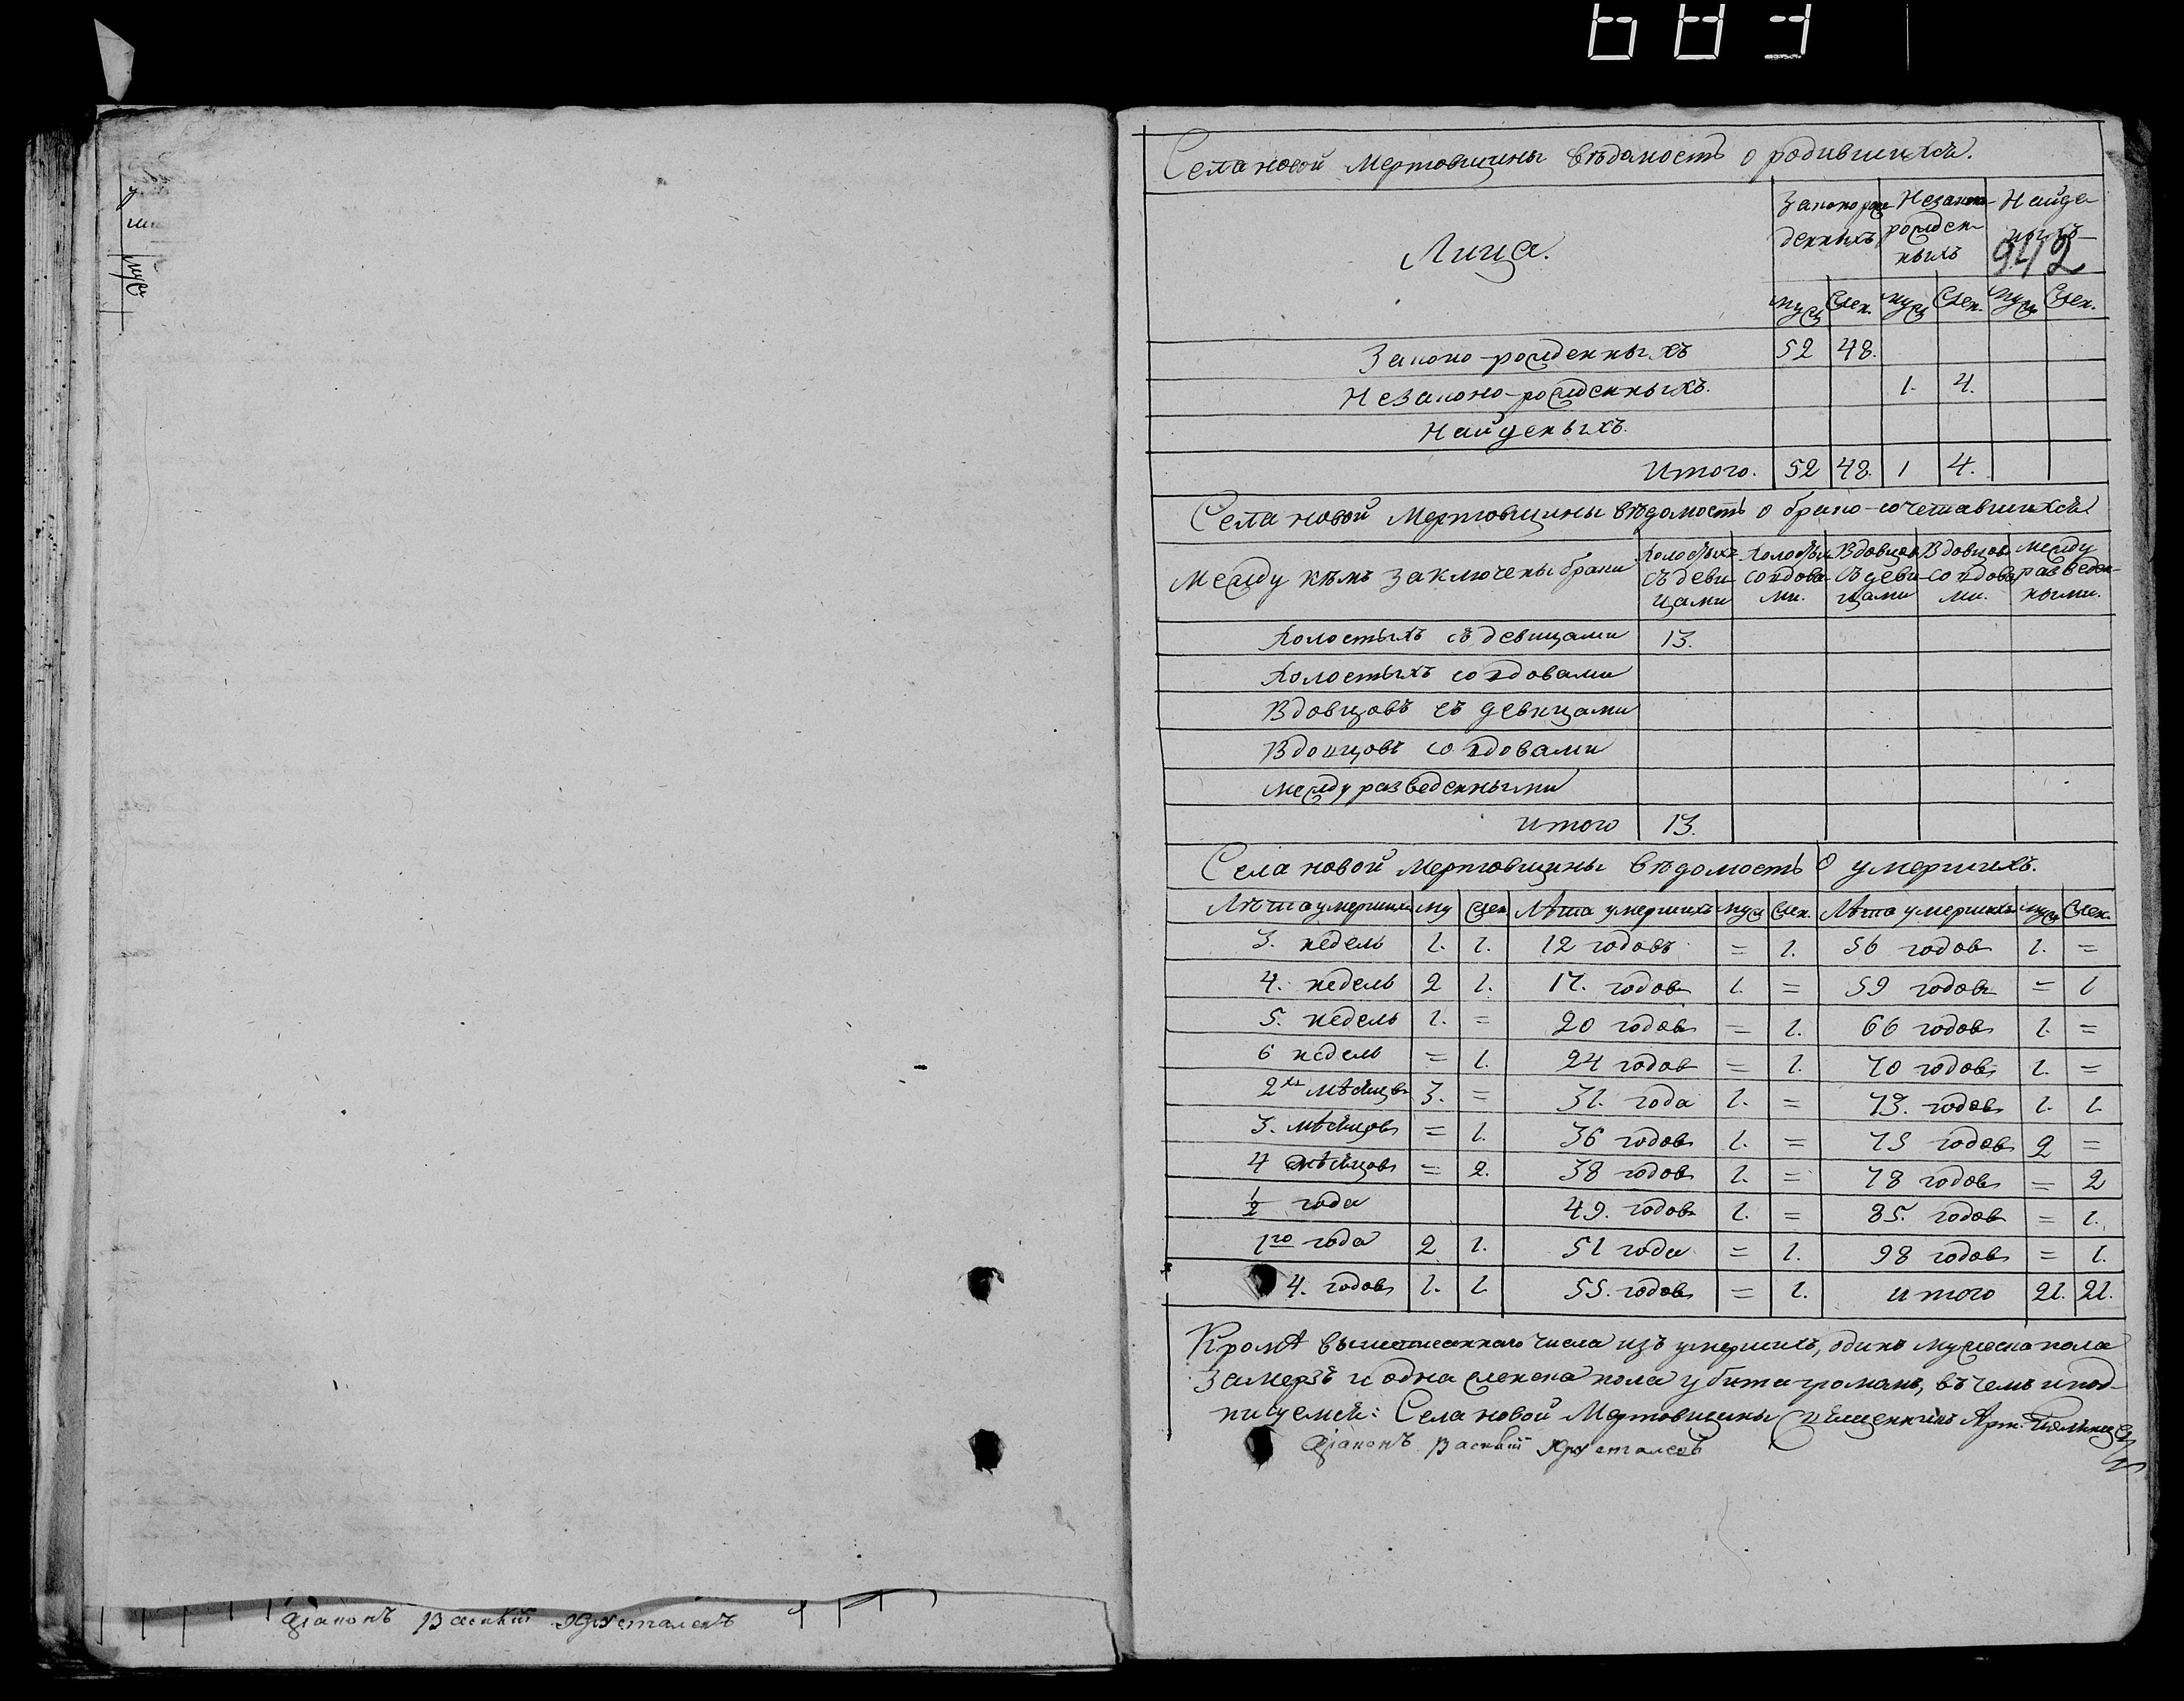 Села новой Мертовщины вѣдомость о родившихся.
Лица.
Законорож-денныхъ Незаконо-рожден-ныхъ Найде-ныхъ
942
муж жен. муж жен. муж жен.
Законо-рожденныхъ 52 48.
Незаконо-рожденныхъ. 1. 4.
Найденыхъ.
Итого. 52 48. 1 4.
Села новой Мертовщины вѣдомость о брако-сочетавшихся
Между кѣмъ заключены браки
Холостыхъ съ деви-цами Холостыхъ со вдова-ми. Вдовцовъ съ деви-цами Вдовцовъ со вдова-ми. Между разведен-ными.
Холостыхъ съ девицами 13.
Холостыхъ со вдовами
Вдовцовъ съ девицами
Вдовцовъ со вдовами
Между разведенными
Итого 13.
Села новой Мертовщины вѣдомость о умершихъ.
Лѣта умершихъ му жен Лѣта умершихъ муж жен. Лѣта умершихъ муж жен.
3. недель 1. 1. 12 годовъ = 1. 56 годовъ 1. =
4. недель 2 1. 17. годовъ 1. = 59 годовъ = 1
5. недель 1. = 20 годовъ = 1. 66 годовъ 1. =
6 недель = 1. 24 годовъ = 1. 70 годовъ 1. =
2хъ мѣсяцевъ 3. = 31. года 1. = 73. годовъ 1. 1.
3. мѣсяцовъ = 1. 36 годовъ 1. = 75 годовъ 2 =
4 мѣсяцовъ = 2. 38 годовъ 1. = 78 годовъ = 2
1/2 года 49. годовъ 1. = 85. годовъ = 1.
1го года 2 1. 51 года = 1. 98 годовъ = 1.
4. годовъ 1. 1 55. годовъ = 1. Итого 21. 21.
Кромѣ вышеписаннаго числа изъ умершихъ, одинъ мужеска пола
замерзъ и одна женска пола убита громомъ, въ чемъ и под-
писуемся: Села новой Мертовщины Священникъ
Дїаконъ Васился Хрусталевъ
Дїаконъ Хрусталевъ